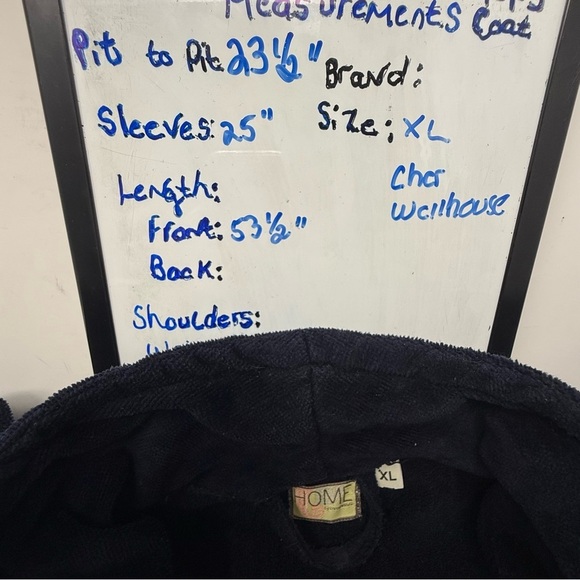 Measurements Coat
Pit to Pit 23 1/2" Brand:
Sleeves: 25" Size: XL
Length: Chor
Wellhouse
Front: 53 1/2"
Back:
Shoulders:
HOME
XL